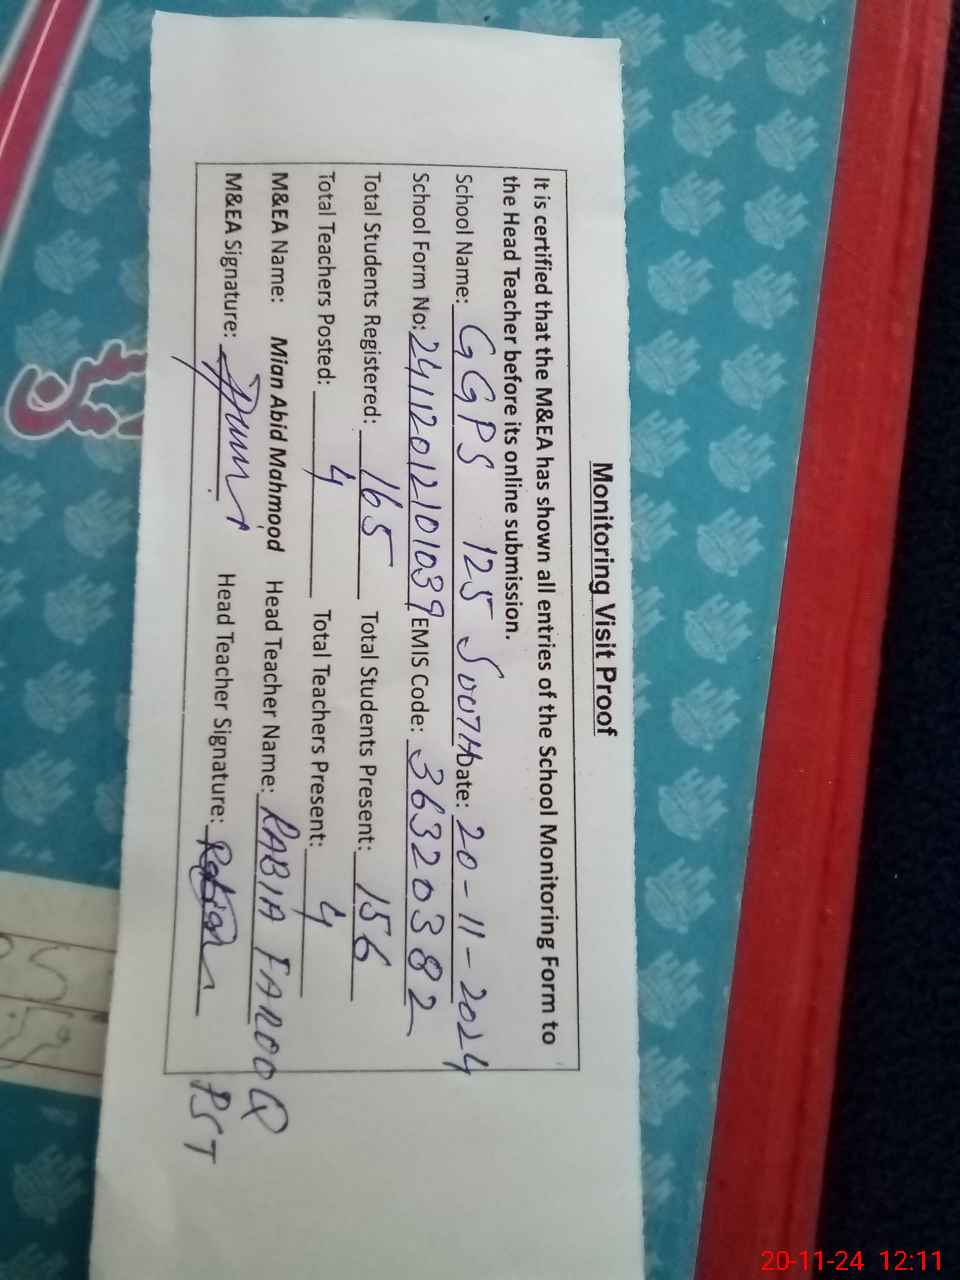 Monitoring Visit Proof
It is certified that the M&EA has shown all entries of the School Monitoring Form to
the Head Teacher before its online submission.
School Name: GGPS 125 SOUTH Date: 20-11-2024
School Form No: 24112012101039 EMIS Code: 36320382
Total Students Registered: 165 Total Students Present: 156
Total Teachers Posted: 4 Total Teachers Present: 4
M&EA Name: Mian Abid Mahmood Head Teacher Name: RABIA FAROOQ
M&EA Signature: Head Teacher Signature: PST
20-11-24 12:11